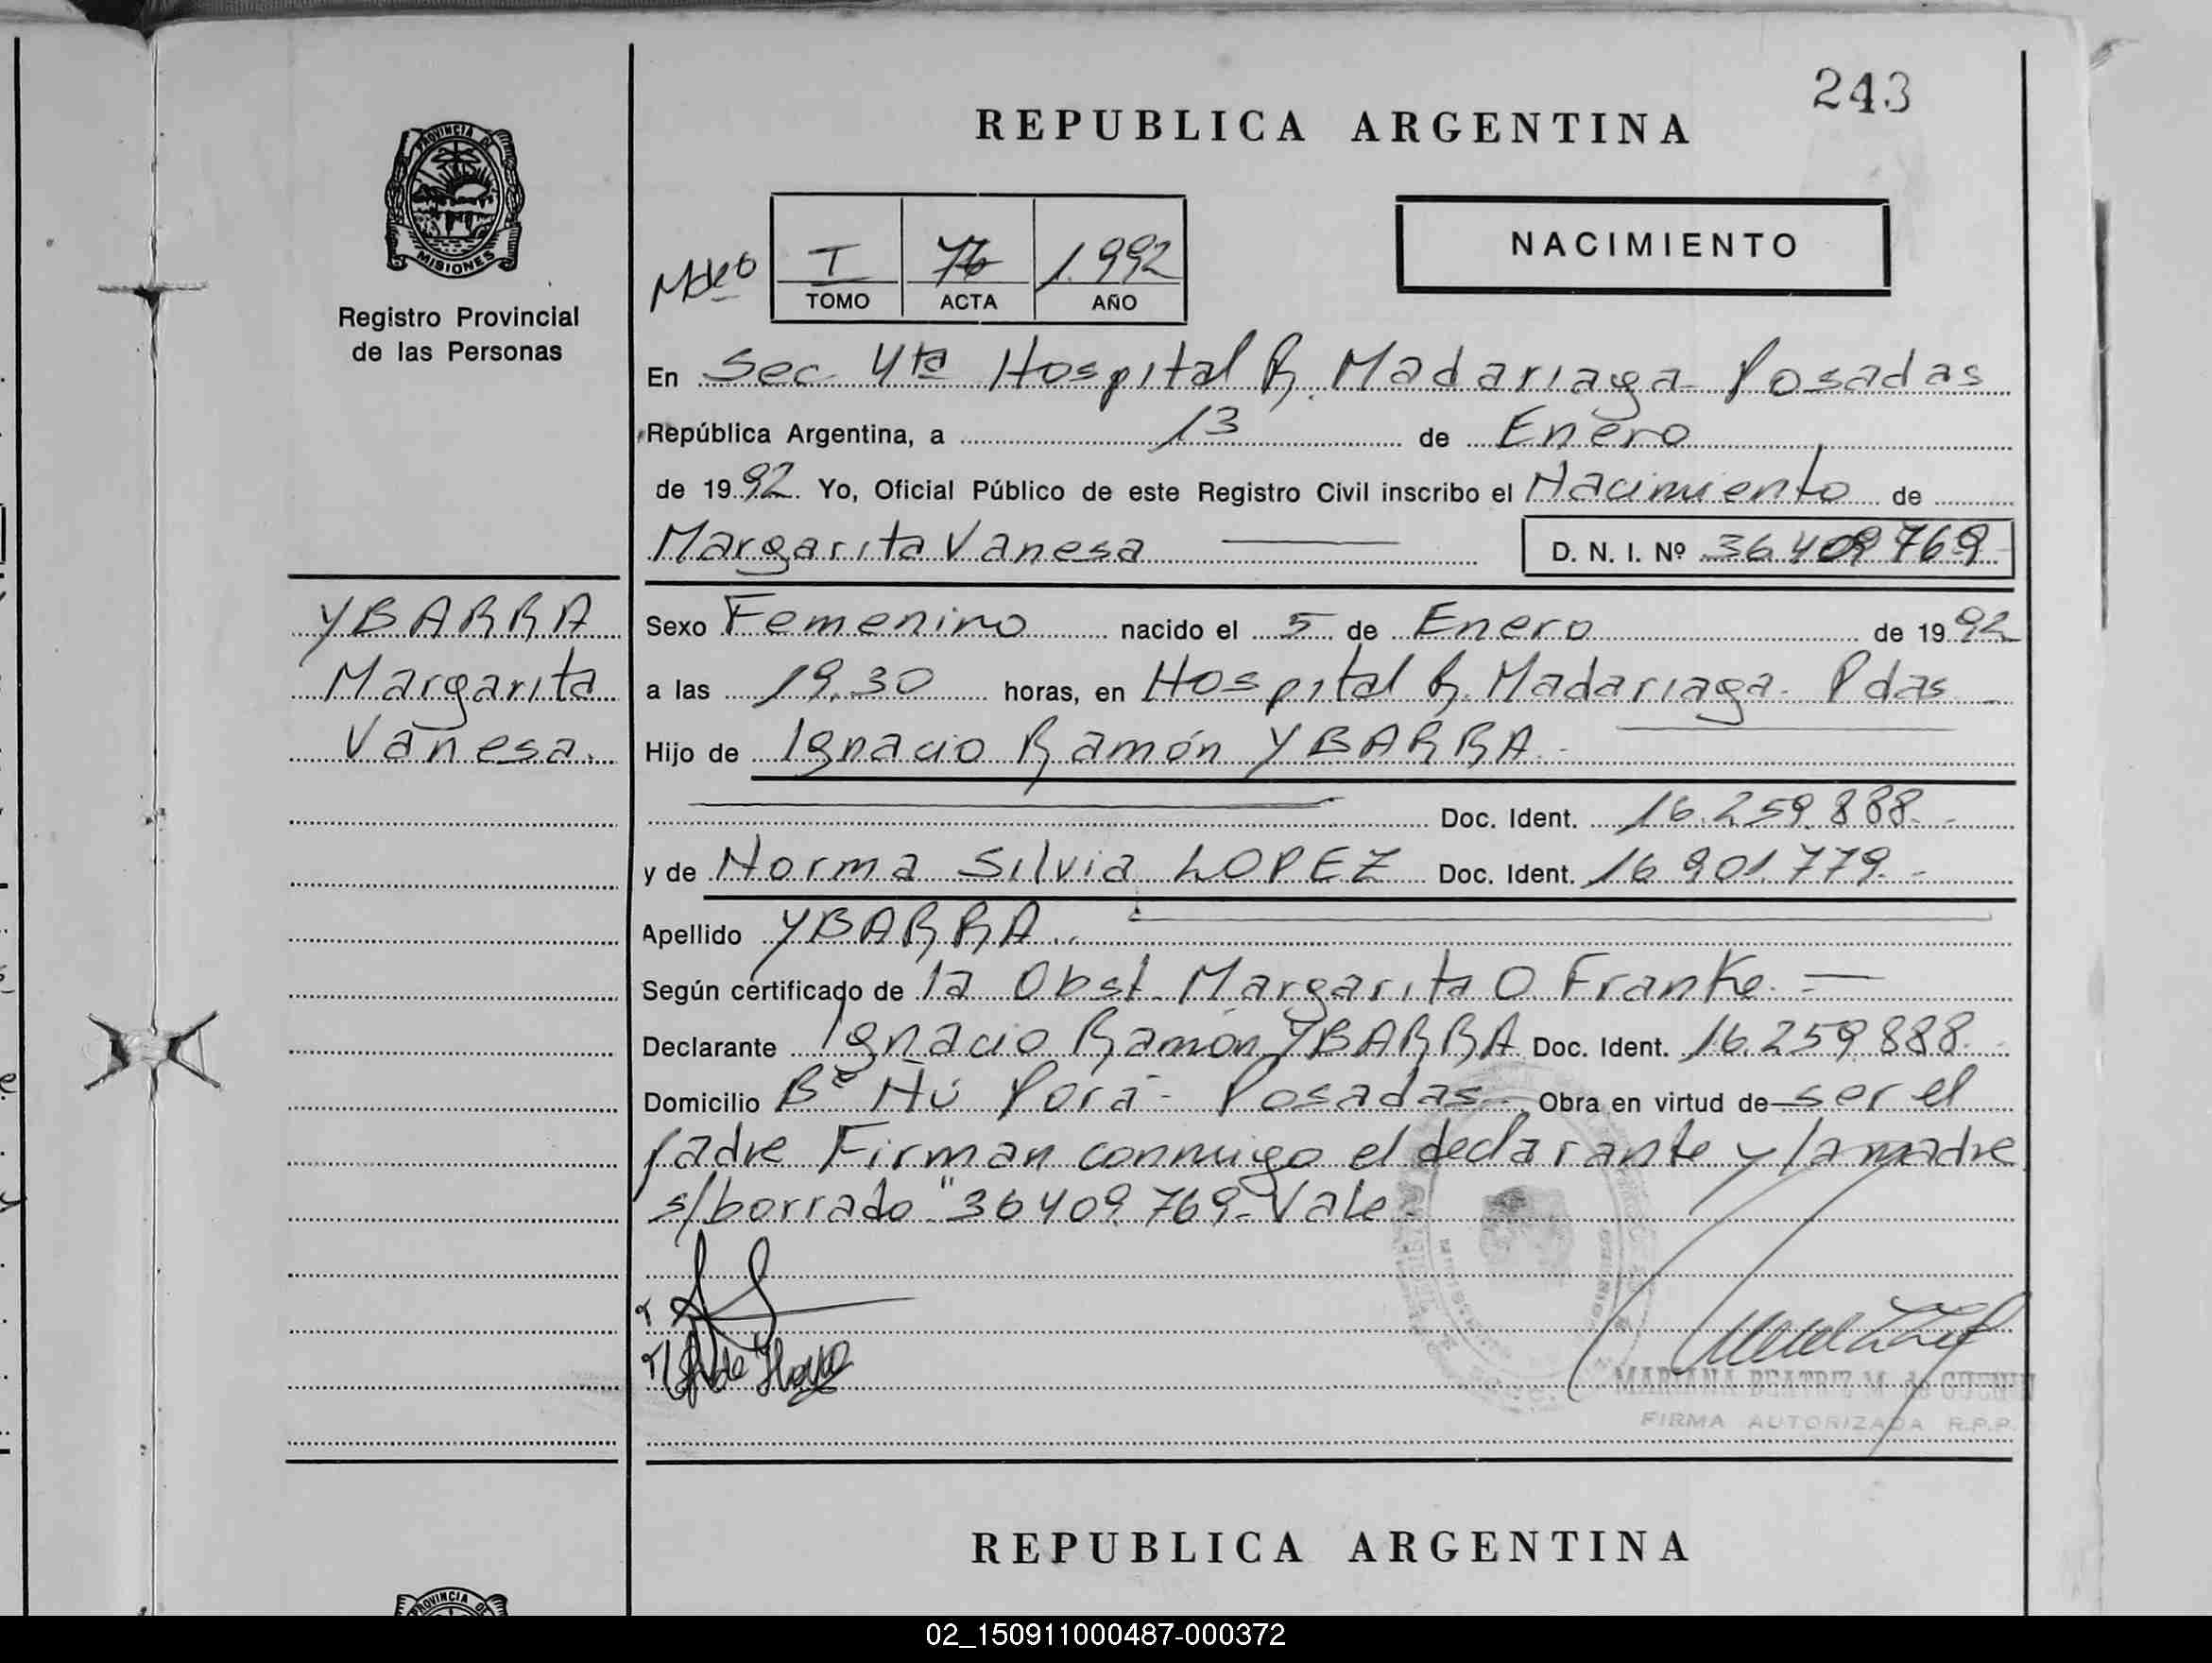 243
REPUBLICA ARGENTINA
PROVINCIA DE
MISIONES
Registro Provincial
de las Personas
I 76 1.992
TOMO ACTA AÑO
NACIMIENTO
En Sec 4ta Hospital R. Madariaga - Posadas
República Argentina, a 13 de Enero
de 1992. Yo, Oficial Público de este Registro Civil inscribo el Nacimiento de
Margarita Vanesa
D. N. I. Nº 36.409.769
YBARRA
Margarita
Vanesa.
Sexo Femenino nacido el 5 de Enero de 1992
a las 19.30 horas, en Hospital R. Madariaga. Pdas
Hijo de Ignacio Ramón YBARRA.-
Doc. Ident. 16.259.888.-
y de Norma Silvia LOPEZ Doc. Ident. 16.901.779.-
Apellido YBARRA.-
Según certificado de la Obst. Margarita O Franke. -
Declarante Ignacio Ramón YBARRA Doc. Ident. 16.259.888.-
Domicilio Bº Ñú Porá - Posadas Obra en virtud de ser el
padre Firman conmigo el declarante y la madre
s/borrado "36409.769- Vale-
MARIANA BEATRIZ M. de GUENIN
FIRMA AUTORIZADA R.P.P.
REPUBLICA ARGENTINA
PROVINCIA DE
02_150911000487-000372